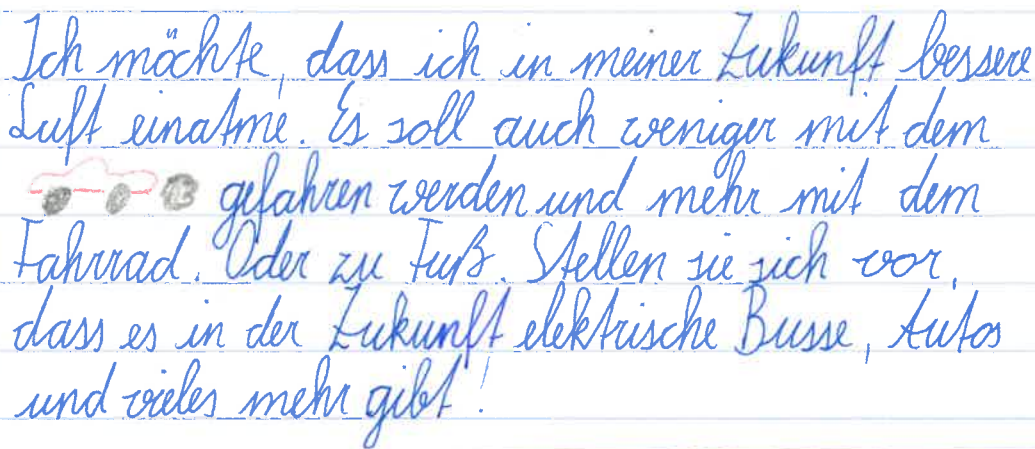 Ich möchte, dass ich in meiner Zukunft bessere
Luft einatme. Es soll auch weniger mit dem
gefahren werden und mehr mit dem
Fahrrad. Oder zu Fuß. Stellen sie sich vor,
dass es in der Zukunft elektrische Busse, Autos
und vieles mehr gibt!